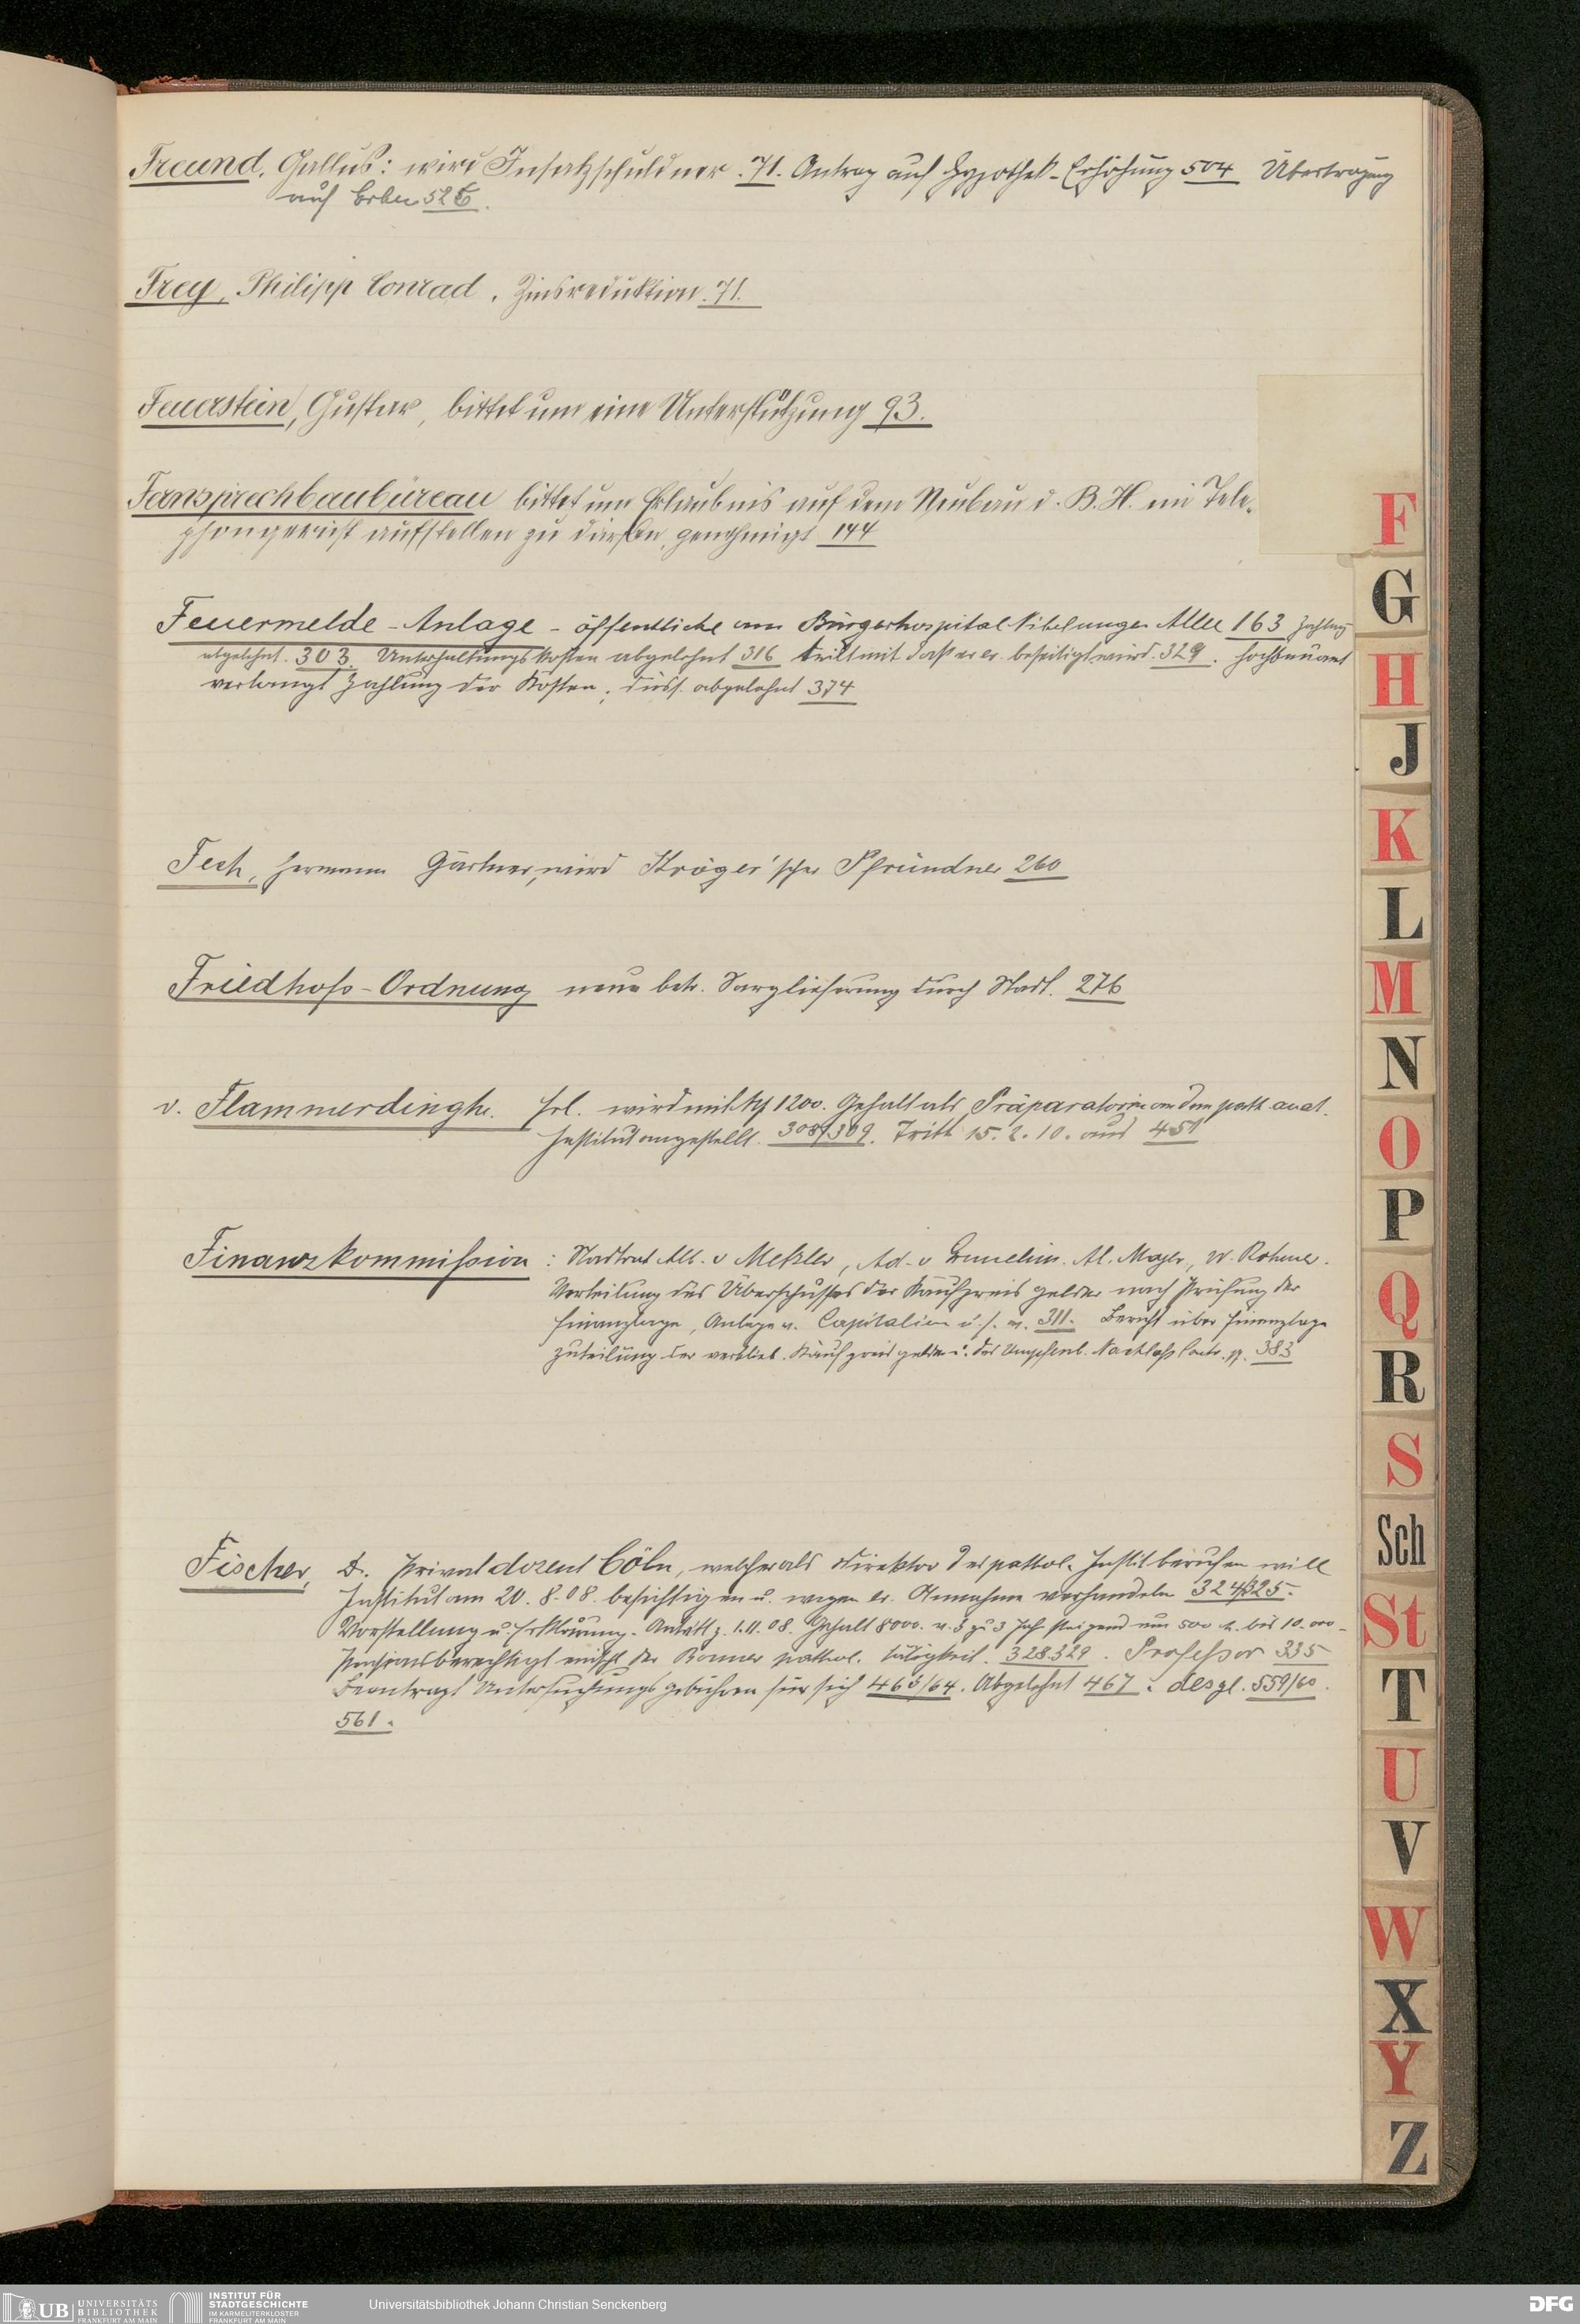 Freund, Gallus: wird Insatzschuldner. 71. Antrag auf Hypothek-Erhöhung 504 Übertragung
auf Erben 526.
Frey, Philipp Conrad. Zinsreduktion. 71.
Feuerstein, Gustav, bittet um eine Unterstützung 93.
Fernsprechbaubüreau bittet um Erlaubnis auf dem Neubau d. B. H. ein Tele-
phongerüst aufstellen zu dürfen, genehmigt 144
Feuermelde-Anlage - öffentliche am Bürgerhospital Nibelungen Allee 163 Zahlung
abgelehnt. 303. Unterhaltungskosten abgelehnt 316 teilt mit daß er beseitigt wird. 329. Hochbauamt
verlangt Zahlung der Kosten; dies. abgelehnt 374
Fech, Hermann Gärtner, wird Kröger'scher Pfründner 260
Friedhofs-Ordnung neue betr. Sarglieferung durch Stadt. 276
v. Flammerdinghe. Frl. wird mit M 1200. Gehalt als Präparatorin an dem path. anat.
Institut angestellt. 308/309. Tritt 15.2.10. aus 451
Finanzkommission: Stadtrat Alb. v Metzler, Ad. v Brüning. Al. Majer, W. Rohmer.
Verteilung des Überschusses der Kaufpreisgelder nach Prüfung der
Finanzlage, Anlage v. Capitalien u. s. w. 311. Bericht über Finanzlage
Zuteilung der verblieb. Kaufpreisgelder u. des Nachlaß 383
Fischer, Dr. Privatdozent Cöln, welcher als Direktor des pathol. Instit berufen will
Institut am 20.8.08. besichtigen u. wegen er. Annahme verhandeln 324/325.
Vorstellung u. Erklärung. Antritt z. 1.11.08. Gehalt 8000. v. 3 zu 3 Jah steigend um 500 M. bis 10.000-
Pensionsberechtigt einschl. der Bonner pathol. Tätigkeit. 328.329. Professor 335
Beantragt Untersuchungsgebühren für sich 463/64. Abgelehnt 467. desgl. 559/60.
561.
F
G
H
J
K
L
M
N
O
P
Q
R
S
Sch
St
T
U
V
W
X
Y
Z
UB UNIVERSITÄTS
BIBLIOTHEK
FRANKFURT AM MAIN
INSTITUT FÜR
STADTGESCHICHTE
IM KARMELITERKLOSTER
FRANKFURT AM MAIN
Universitätsbibliothek Johann Christian Senckenberg
DFG